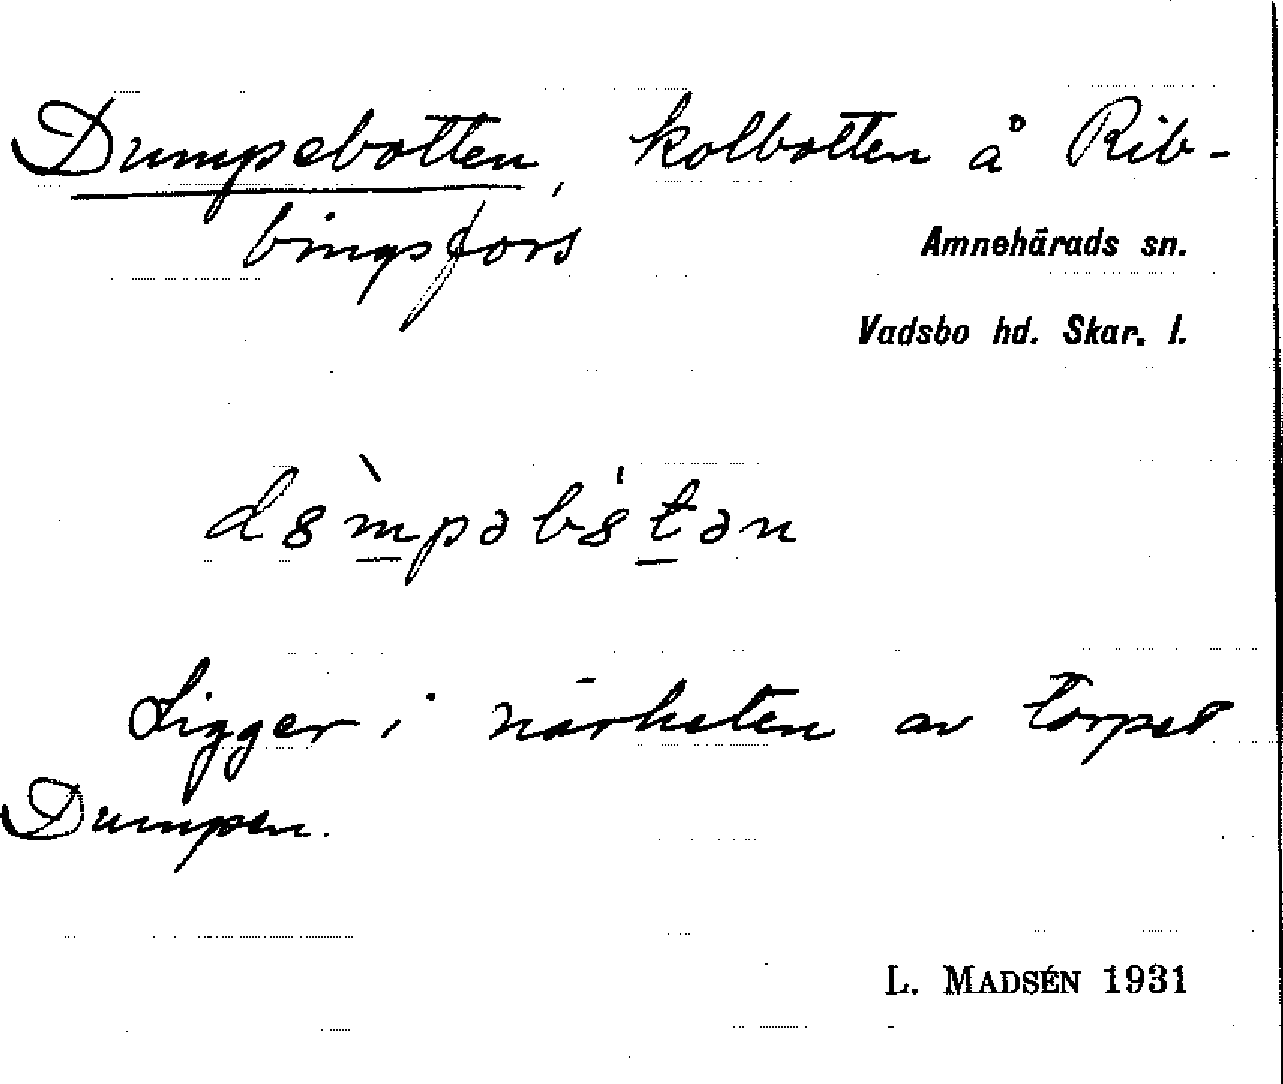 Dumpebotten, kolbotten å Rib-
bingsfors
Amnehärads sn.
Vadsbo hd. Skar. l.
d8̀m̲pəb8́t̲ən
Ligger i närheten av torpet
Dumpen.
L. MADSÉN 1931